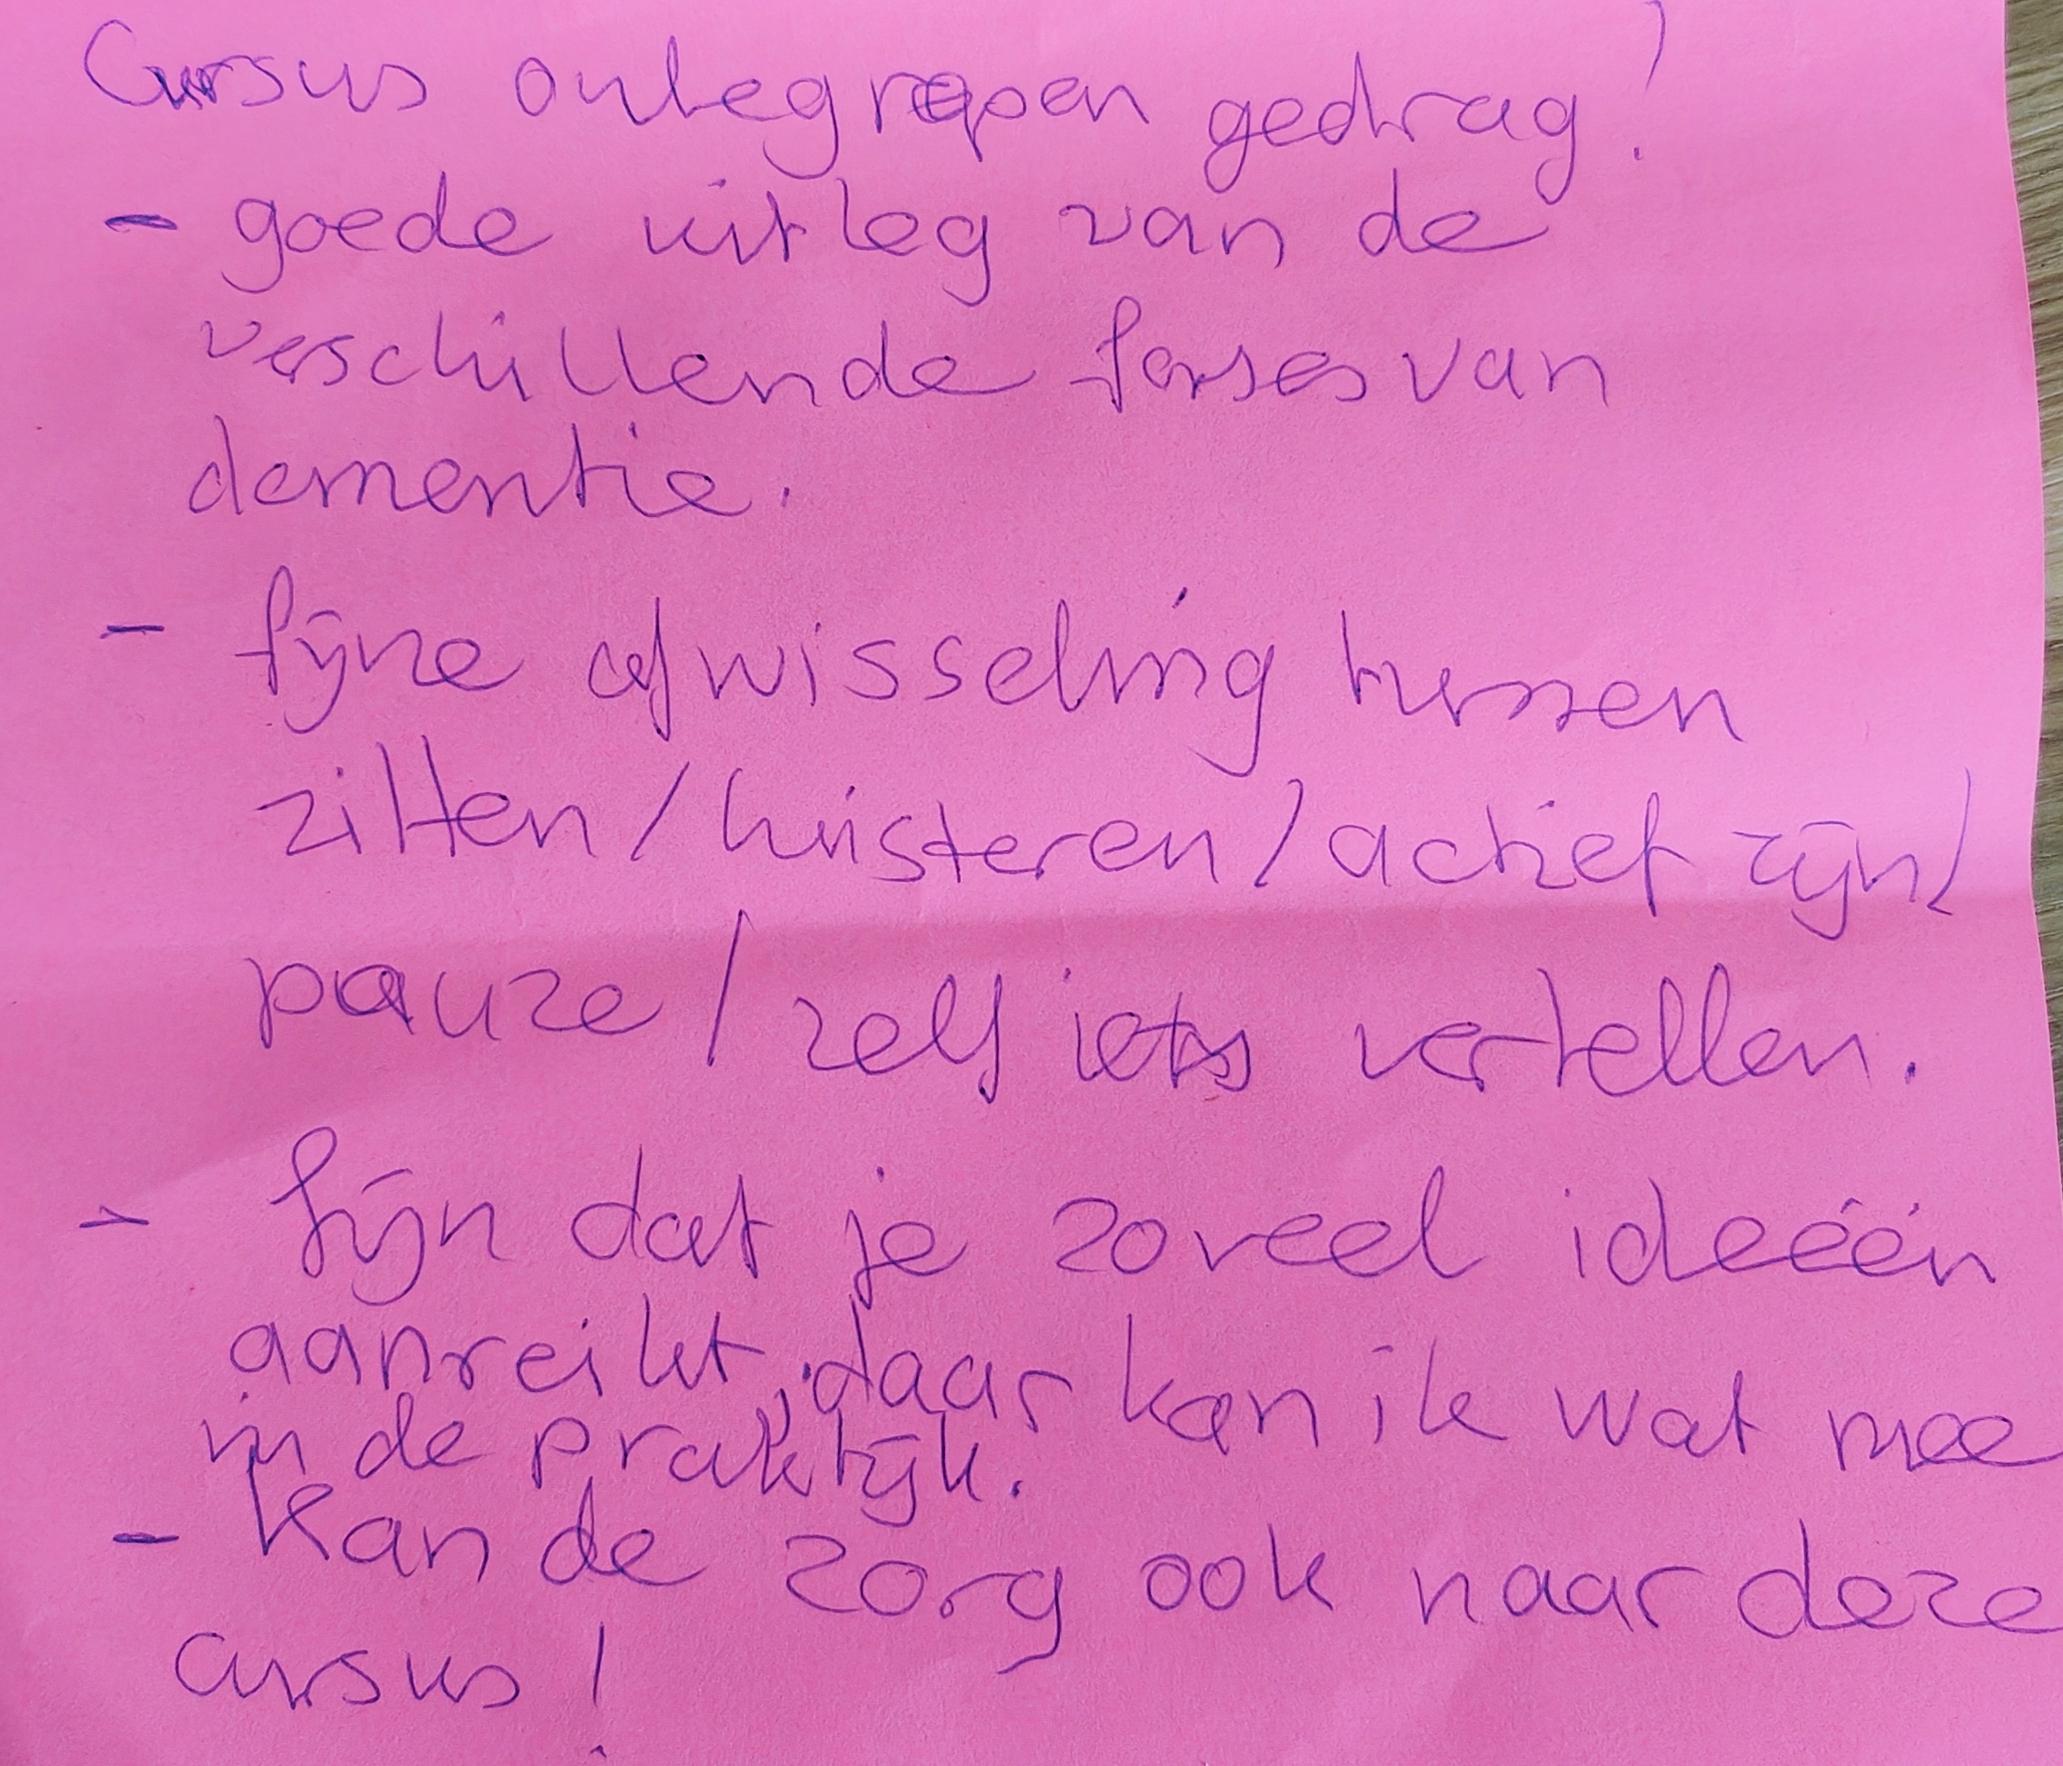 Cursus onbegrepen gedrag!
- goede uitleg van de
verschillende fases van
dementie.
- fijne afwisseling tussen
zitten/luisteren/actief zijn/
pauze/zelf iets vertellen.
- fijn dat je zoveel ideeén
aanreikt, daar kan ik wat mee
in de praktijk.
- Kan de zorg ook naar deze
cursus!